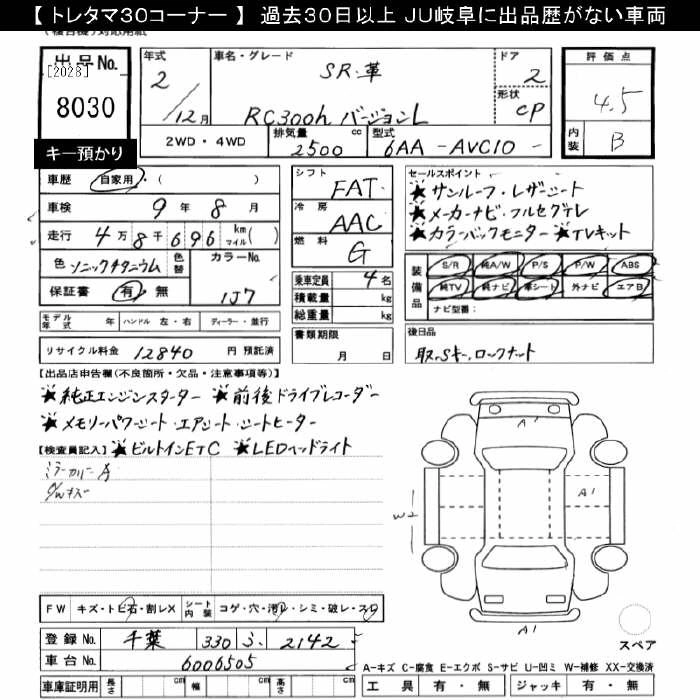 【 トレタマ30コーナー 】 過去30日以上 JU岐阜に出品歴がない車両
出品No.
[2028]
8030
キー預かり
年式 2/12月
車名・グレード SR・革
RC300h バージョンL
ドア 2
形状 CP
評価点 4.5
内装 B
2WD・4WD
排気量 2500 cc
型式 6AA - AVC10 -
車歴 自家用・( )
車検 9年 8月
走行 4万8千696 km マイル( )
色 ソニックチタニウム 色替
カラーNo. 1J7
保証書 有・無
シフト FAT
冷房 AAC
燃料 G
乗車定員 4名
積載量 kg
総重量 kg
書類期限 月 日
セールスポイント
★サンルーフ・レザーシート
★メーカーナビ・フルセグTV
★カラーバックモニター ★TVキット
装備品 S/R 純A/W P/S P/W ABS
純TV 純ナビ 革シート 外ナビ エアB
ナビ型番:
モデル年式 年 ハンドル 左・右 ディーラー・並行
リサイクル料金 12840 円 預託済
後日品
取.Sキー.ロックナット
【出品店申告欄(不良箇所・欠品・注意事項等)】
★純正エンジンスターター ★前後ドライブレコーダー
★メモリーパワーシート・エアシート・シートヒーター
【検査員記入】 ★ビルトインETC ★LEDヘッドライト
ミラーカバーA
A1
A1
W2
A1
FW キズ・トビ石・割レX シート内装 コゲ・穴・汚レ・シミ・破レ・スレ
登録No. 千葉 330 ふ 2142
車台No. 6006505
車庫証明用 長さ cm 幅 cm 高さ cm
スペア
A-キズ C-腐食 E-エクボ S-サビ U-凹ミ W-補修 XX-交換済
工具 有・無 ジャッキ 有・無